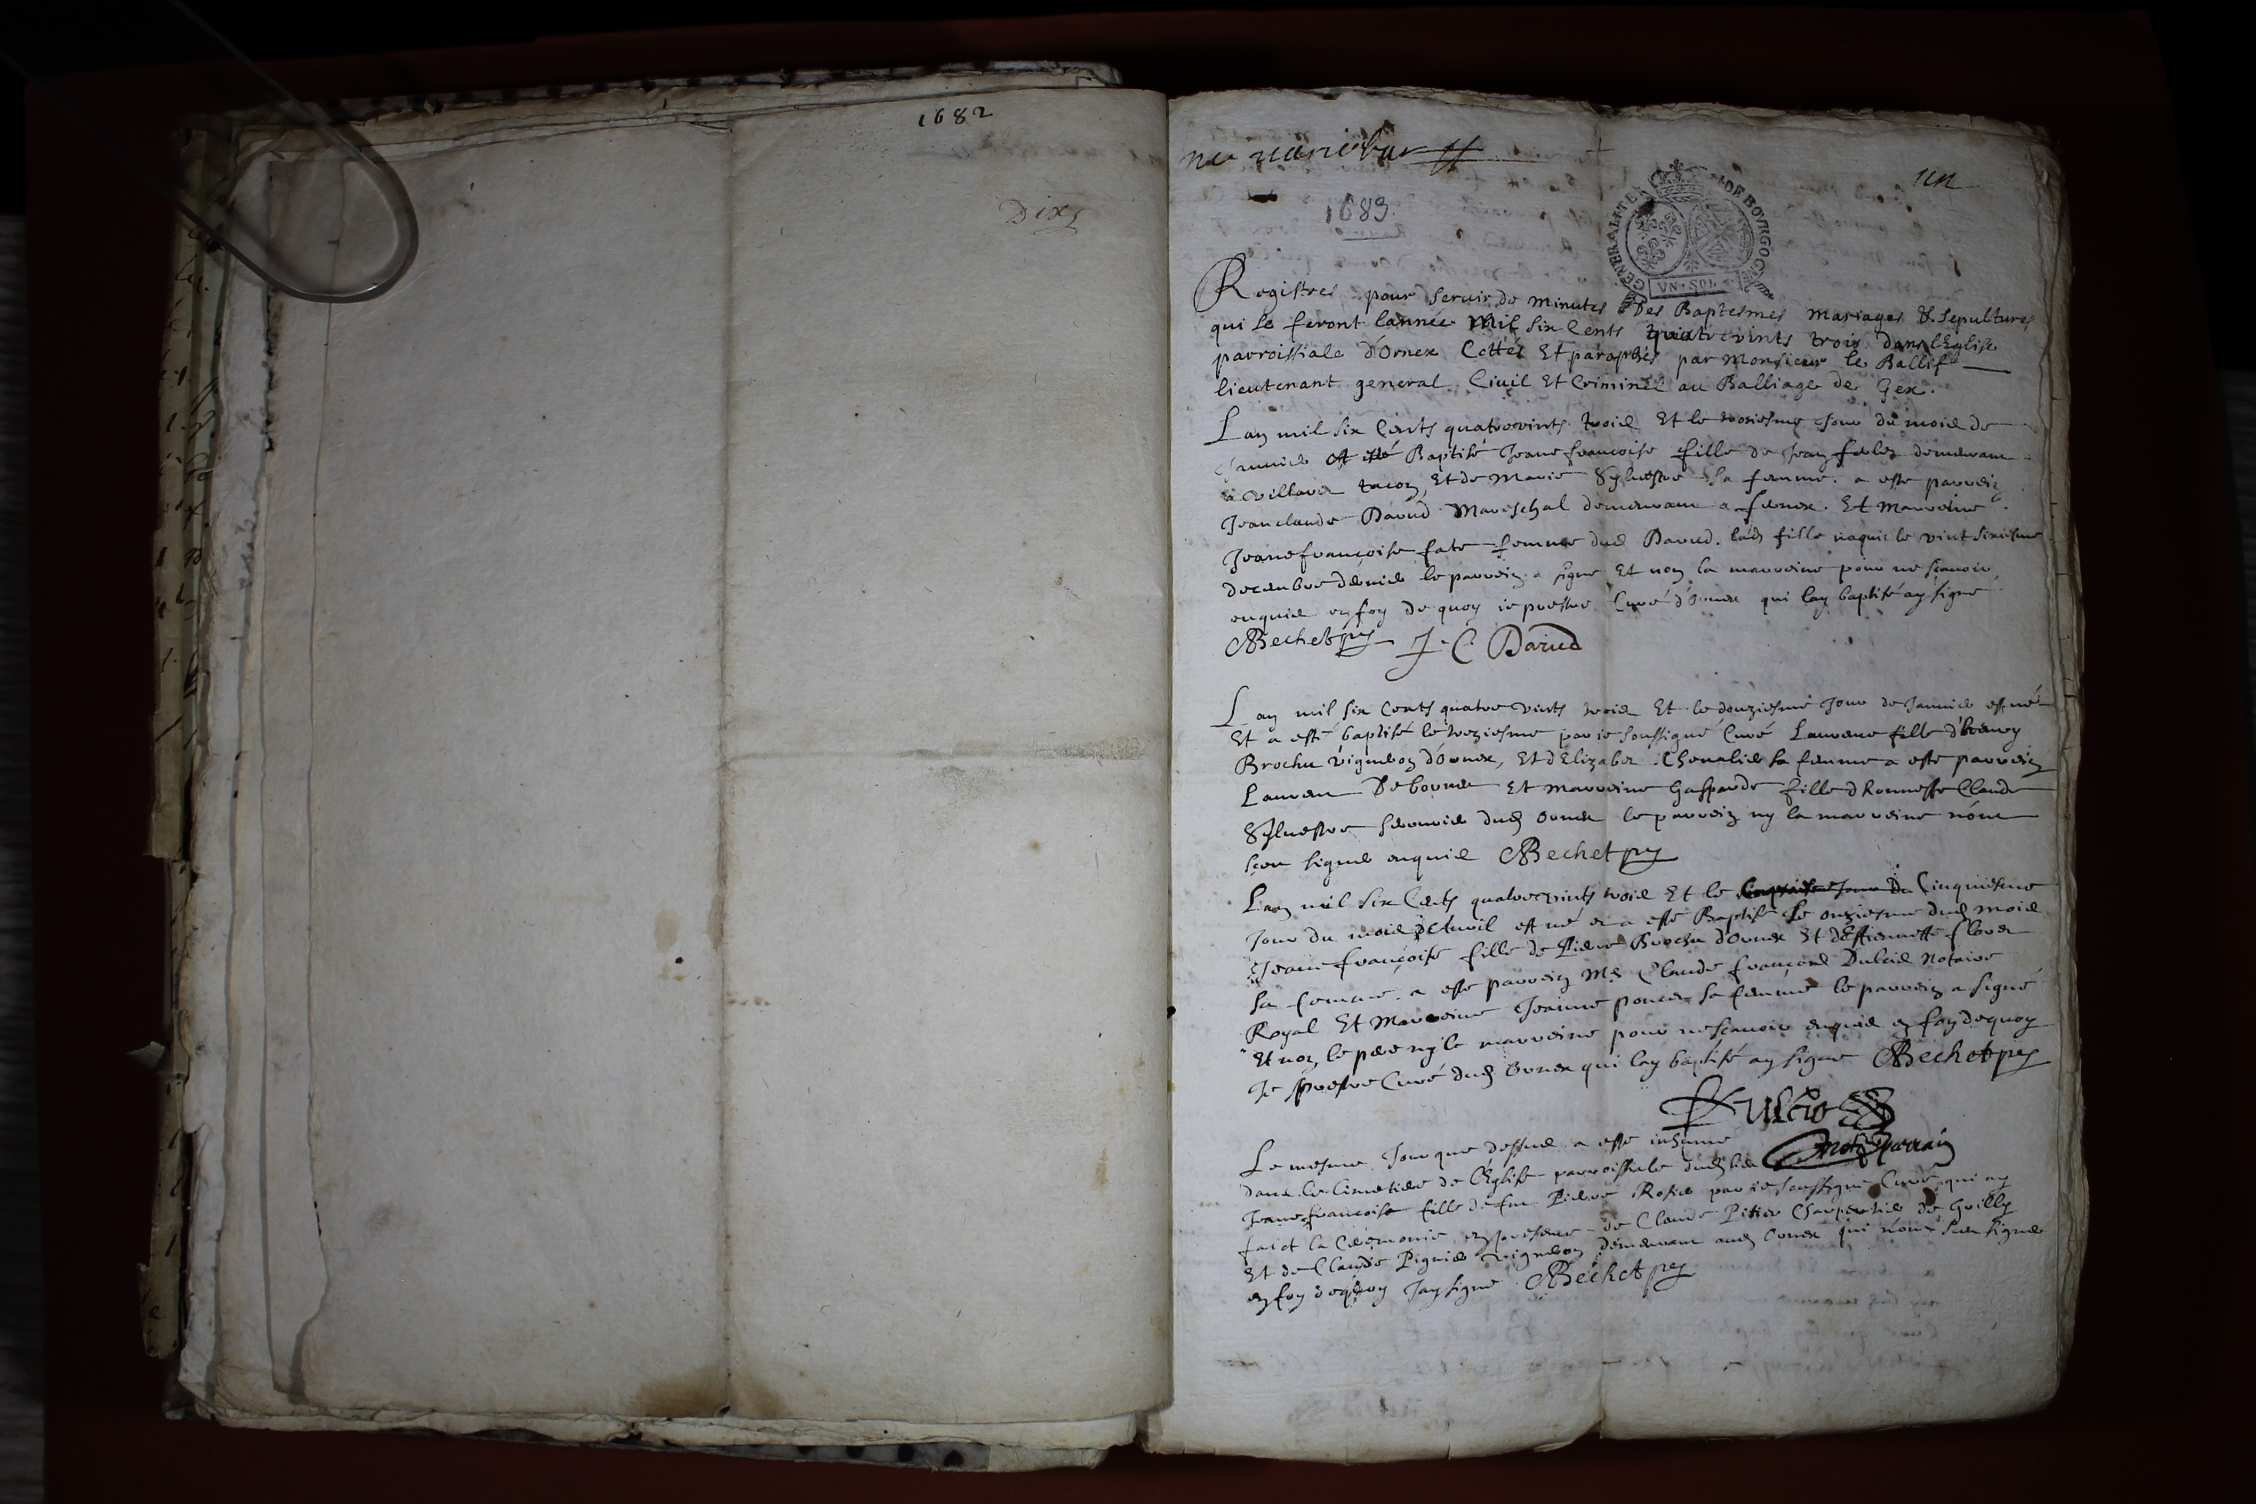 1682
Dix
ne varietur
un
1683
GENERALITE DE BOURGOGNE
UN SOL
Registres pour servir de minutes Des Baptesmes mariages & sepultures
qui se feront lannée Mil six Cents quatrevints trois dans lEglise
parroissiale d'Ornex Cottés Et paraphés par Monsieur le Ballif
lieutenant general Civil Et Criminel au Balliage de Gex.
Lan mil six Cents quatrevints trois Et le troisiesme Jour du mois de
Janvier a esté Baptisé Jeane francoise fille de Jean demeurant
a villard tacon, Et de Marie Sylvestre sa femme. a esté parrein
Jeanclaude Davud Mareschal demeurant a fernex. Et marreine
Jeanefrançoise fate femme dud Davud. lad fille naquit le vint sixiesme
decembre dernier le parrein a signé Et non la marreine pour ne sçavoir
enquise en foy de quoy ie prestre Curé d'Ornex qui lay baptisé ay signé
Bechet pre J. C. Davud
Lan mil six Cents quatre vints trois Et le douziesme Jour de Janvier est né
Et a esté baptisé le treziesme par ie soussigné Curé Laurence fille d'
Brochu vigneron d'Ornex, Et d'Elizabet Chevalier sa femme a esté parrein
Laurent Debornex Et marreine Gasparde fille d'honneste Claude
Sylvestre dud Ornex le parrein ny la marreine nont
sceu signer enquis Bechet pre
Lan mil six Cents quatrevints trois Et le Cinquiesme
Jour du mois d'Avril est né et a esté Baptisé le onziesme dud mois
Jeane françoise fille de Pierre Brochu d'Ornex Et d'Estiennette
sa femme. a esté parrein Me Claude françois Dulcis Notaire
Royal Et Marreine Jeanne sa femme le parrein a signé
Et non le pere ny la marreine pour ne sçavoir enquis en foy dequoy
Je prestre Curé dud Ornex qui lay baptisé ay signé Bechet pre
Le mesme Jour que dessus a esté inhumé
dans le Cimetiere de l'Eglise parroissiale dud lieu parrain
Jeane françoise fille de feu Pierre Rosier par ie soussigné Curé qui ay
faict la Ceremonie en presence de Claude Pitier Charpentier de
Et de Claude vigneron demeurant aud Ornex qui nont sceu signer
en foy dequoy Jay signé Bechet pre